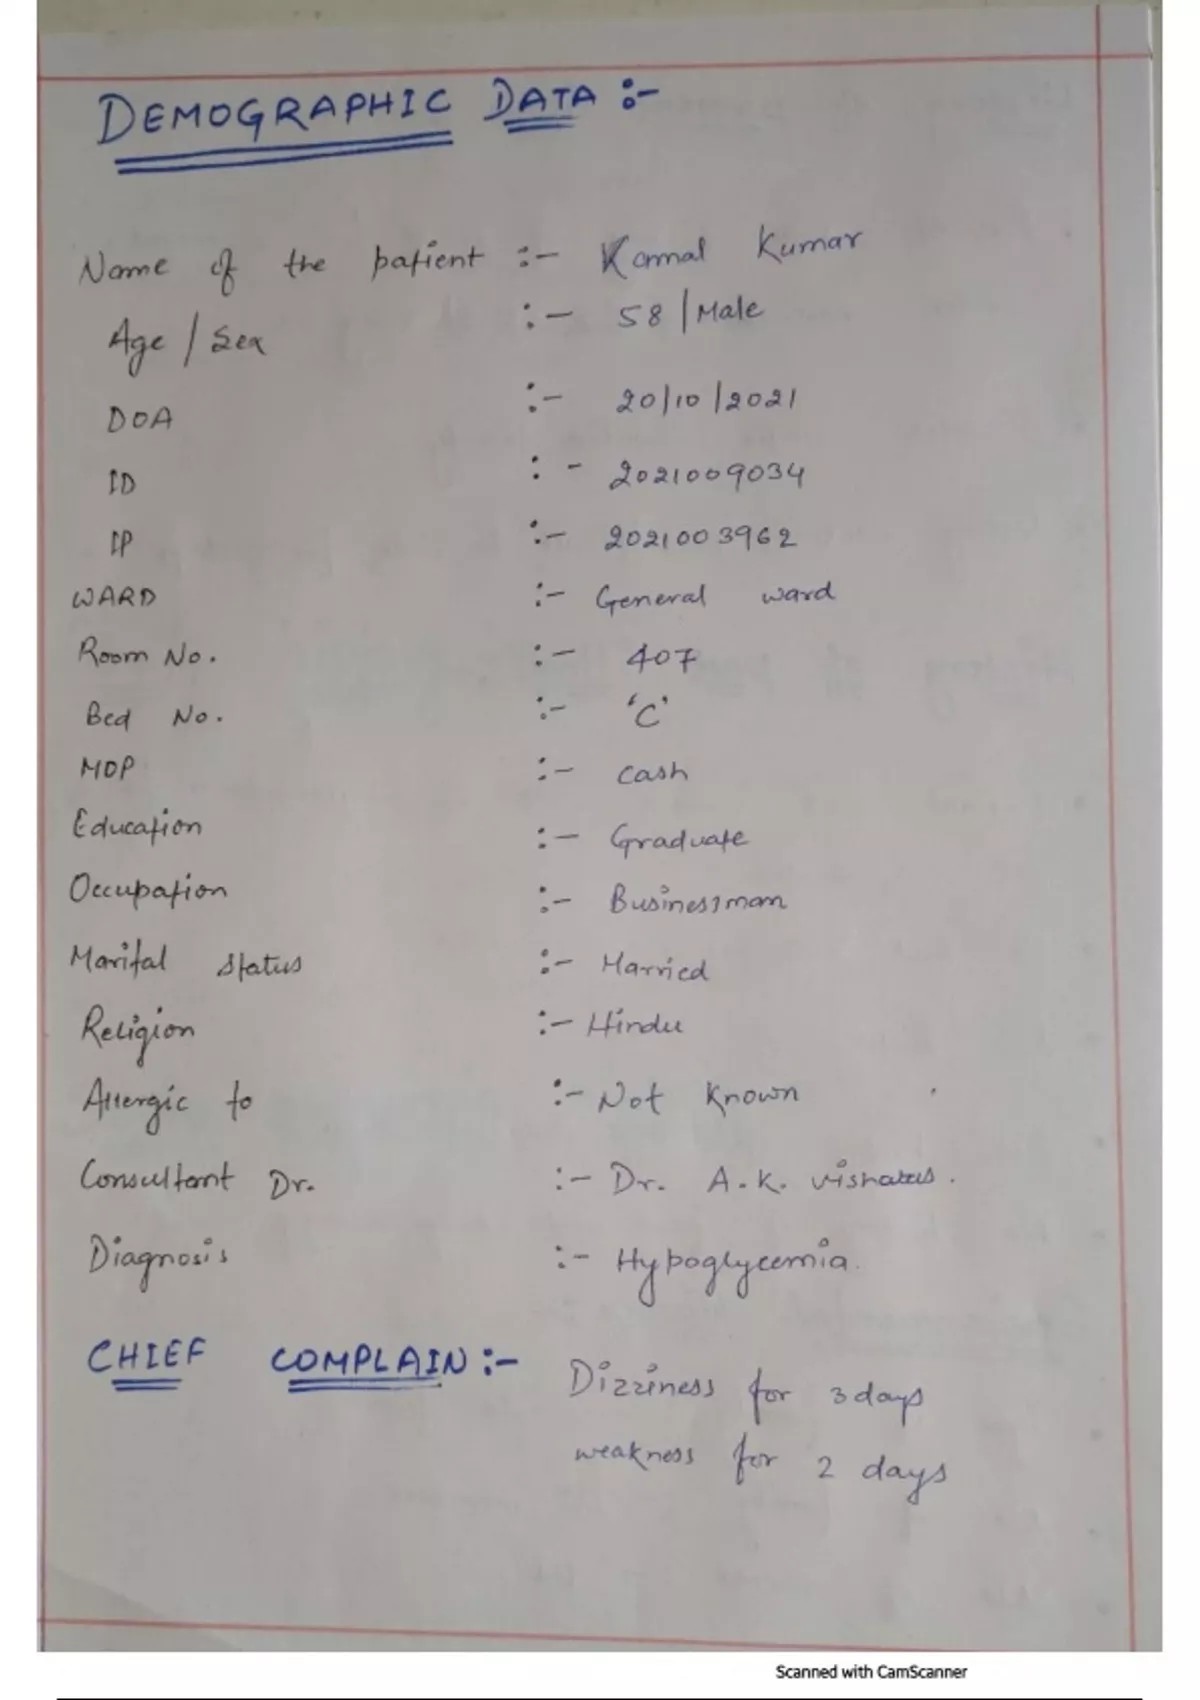 DEMOGRAPHIC DATA :-
Name of the patient :- Kamal Kumar
Age / Sex :- 58 / Male
DOA :- 20/10/2021
ID :- 2021009034
IP :- 2021003962
WARD :- General ward
Room No. :- 407
Bed No. :- 'C'
MOP :- cash
Education :- Graduate
Occupation :- Businessman
Marital status :- Married
Religion :- Hindu
Allergic to :- Not Known
Consultant Dr. :- Dr. A.K.
Diagnosis :- Hypoglycemia.
CHIEF COMPLAIN :- Dizziness for 3 days
weakness for 2 days
Scanned with CamScanner